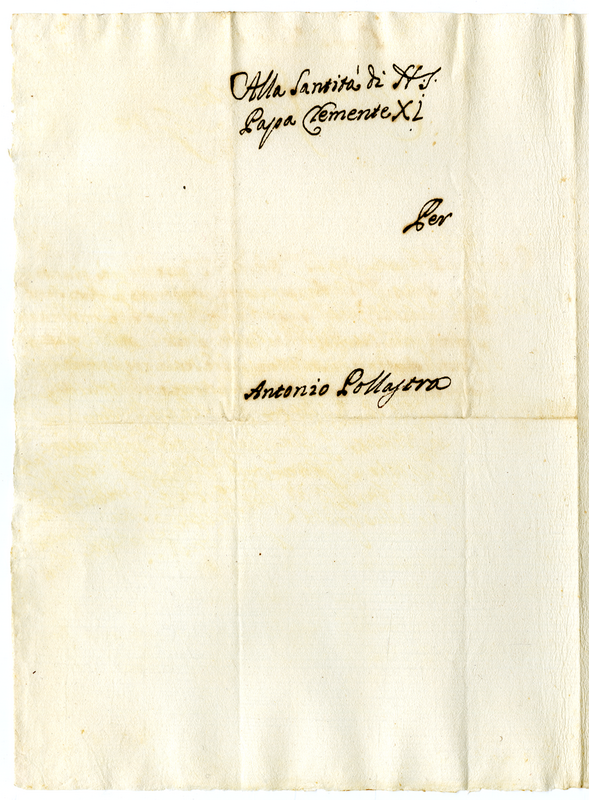 Alla Santità di N. S.
Papa Clemente XI
Per
Antonio Pollastra